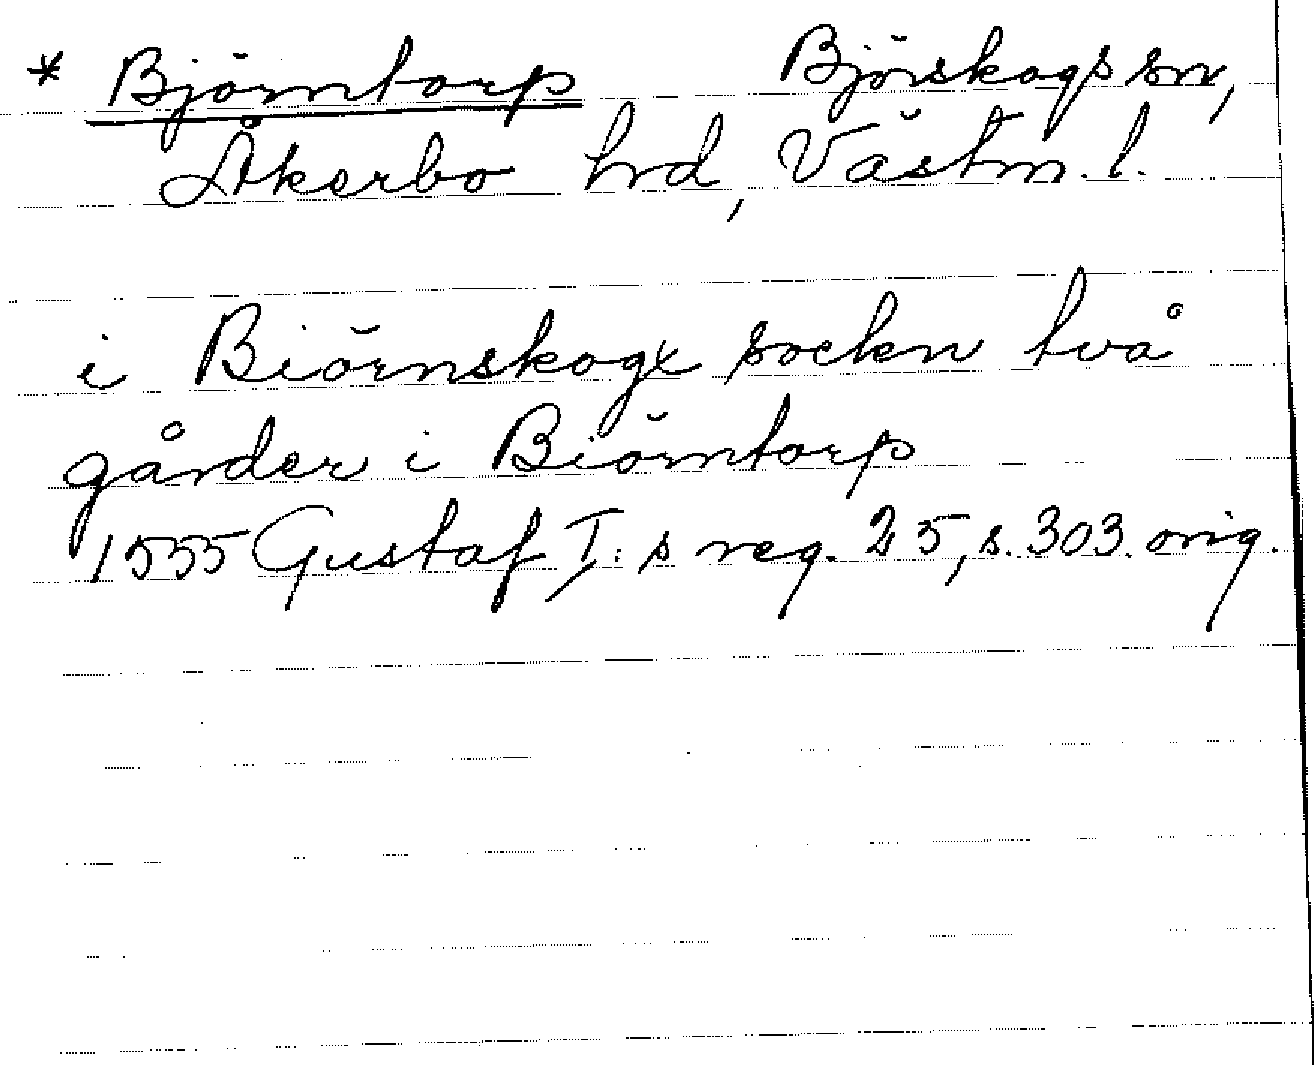 * Björntorp Björskogs sn,
Åkerbo hd, Västm. l.
i Biörnskogx sockn två
gårder i Biörntorp
1555 Gustaf I:s reg. 25, s. 303. orig.